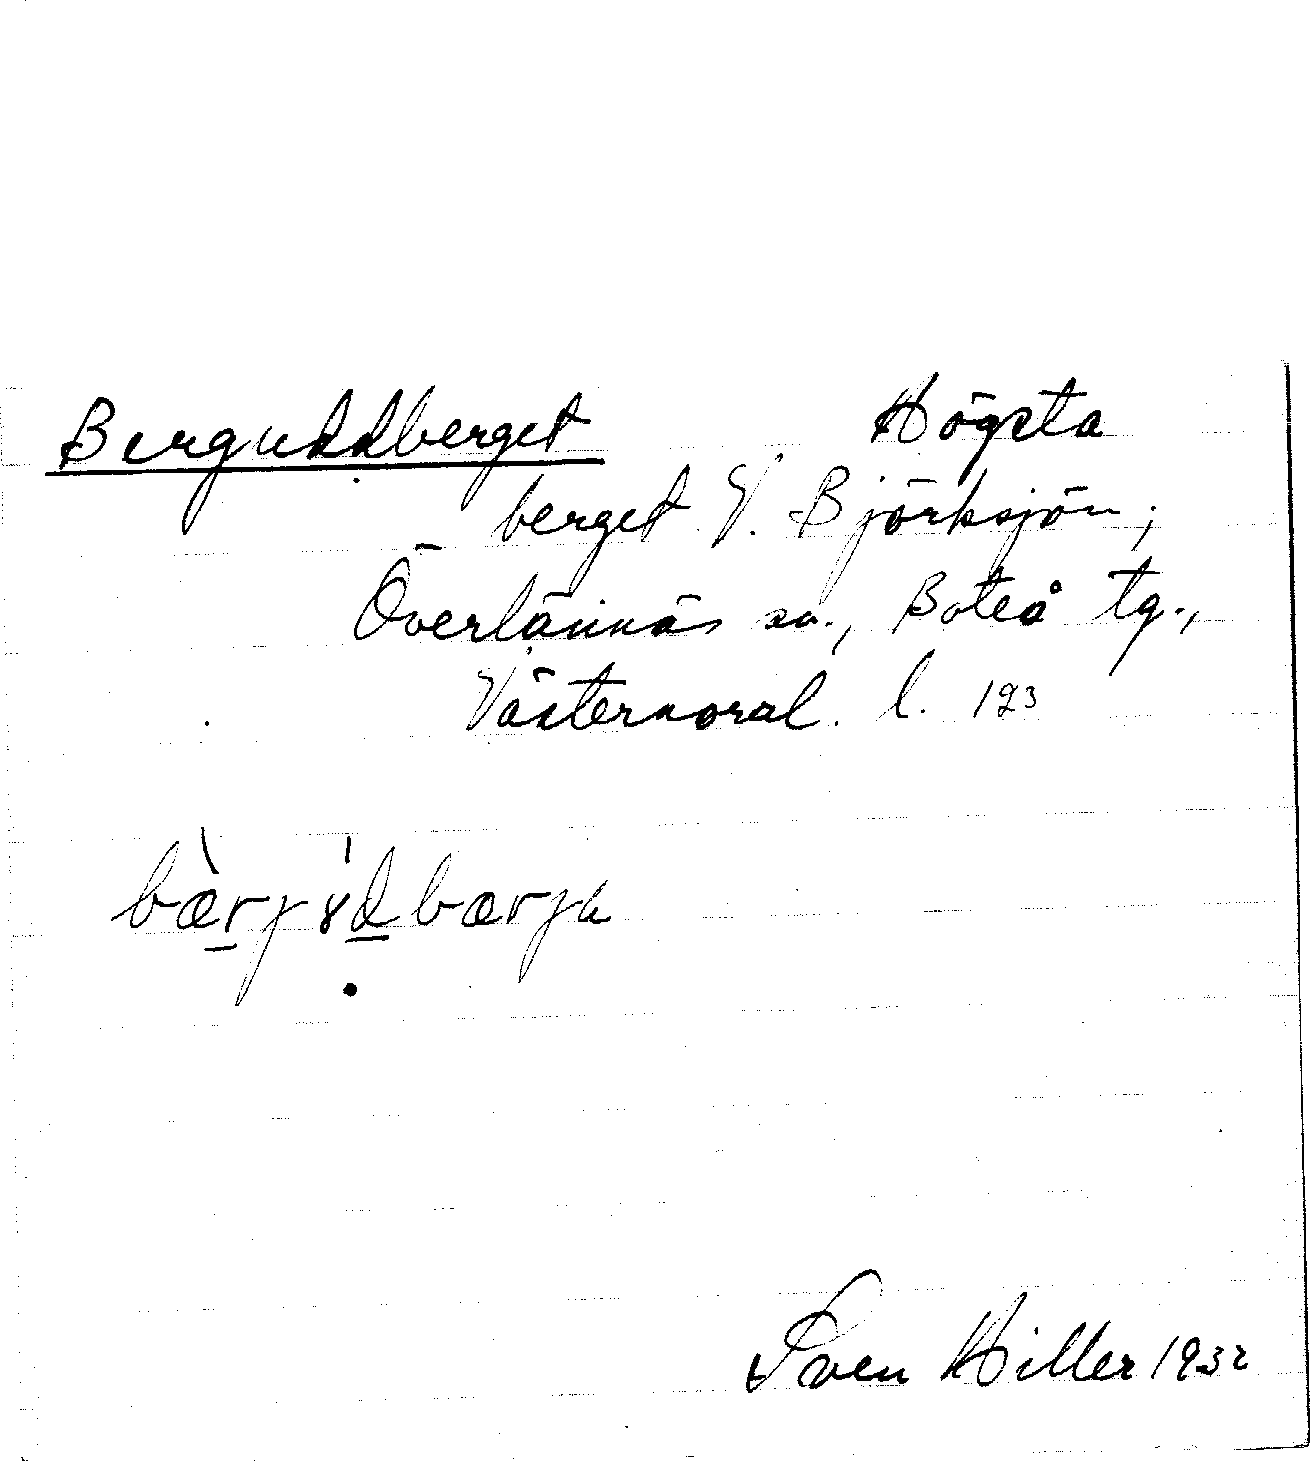 Berguddberget Högsta
berget V. Björksjön,
Överlännäs sn., Boteå tg.,
Västernorrl. l. 193
bæ̀rjɤ́dbærjɑ
Sven Hiller 1932